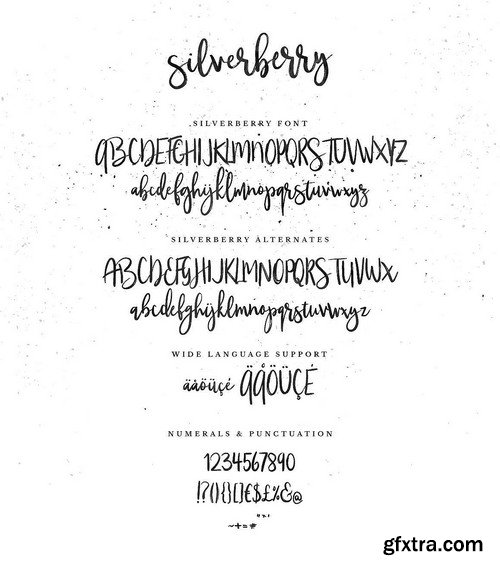 silverberry
.SILVERBERRY FONT
ABCDEFGHIJKLMNOPQRSTUVWXYZ
abcdefghijklmnopqrstuvwxyz
SILVERBERRY ALTERNATES
ABCDEFGHIJKLMNOPQRSTUVWX
abcdefghijklmnopqrstuvwxyz
WIDE LANGUAGE SUPPORT
äåöüçé ÄÅÖÜÇÉ
NUMERALS & PUNCTUATION
1234567890
!?(){}[]€$£%&@
"*'
~+=#
gfxtra.com